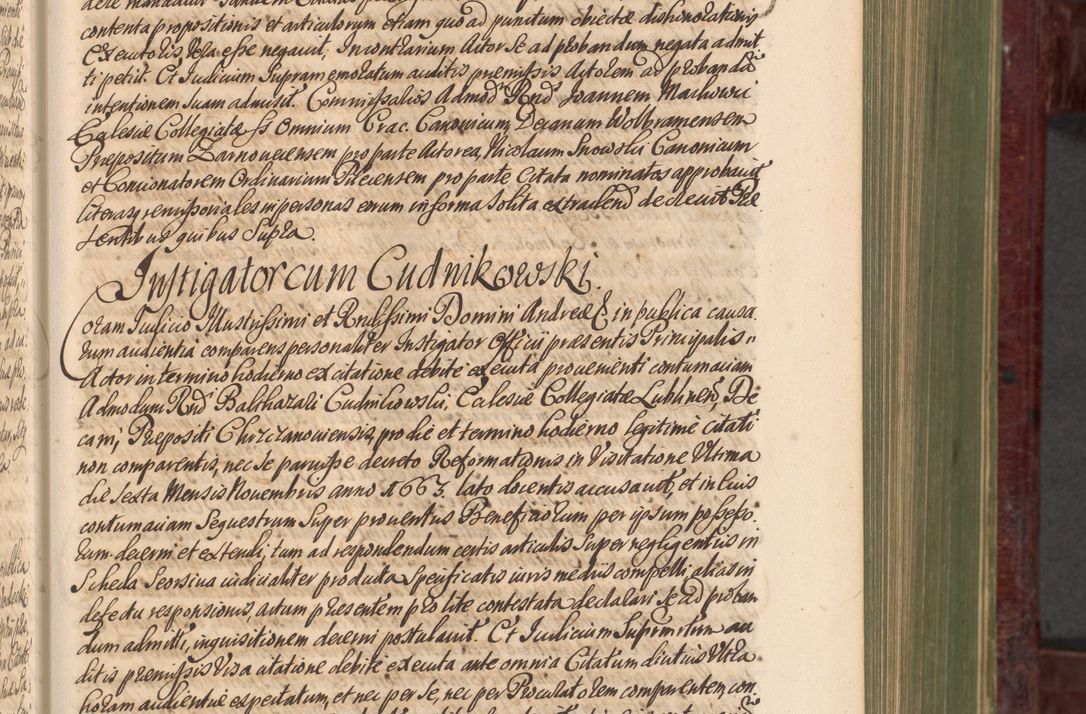 contenta propositionis et articulorum etiam quo ad punctum obiectæ dishonorationis
Executoris, vera esse negavit; In contrarium Actor se ad probandum negata admit
ti petit. Et Iudicium Supramemoratum auditis præmissis Actorem ad probandã
intentionem suam admisit. Commissarios Admodm Rnd Joannem Markowic
Ecclesiæ Collegiatæ SS Omnium Crac. Canonicum, Decanum Wolbramensem
Præpositum Zarnoviecensem pro parte Actorea, Nicolaum Snowski Canonicum
et Concionatorem Ordinarium Pilecensem pro parte Citata nominatos approbavit
literasq remissoriales in personas eorum in forma solita extradend decrevit Præ
sentibus quibus supra.
Instigator cum Cudnikowski.
Coram Iudicio Illustrissimi et Rndissimi Domini Andreæ E in publica causa
rum audientia comparens personaliter Instigator Officii præsentis Principalis
Actor in termino hodierno ex citatione debite executa provenienti contumaciam
Admodum Rnd Balthazari Cudnikowski, Ecclesiæ Collegiatæ Lublinen, De
cani, Præpositi Chrzczanoviensis, pro die et termino hodierno legitime citati
non comparentis, nec se paruisse decreto Reformationis in Visitatione Ultima
die sexta Mensis Novembris anno 1663. lato docentis accusavit, et in eius
contumaciam Sequestrum super proventus Beneficiorum per ipsum possesso
rum decerni et extendi, tum ad respondendum certis articulis super negligentiis in
Scheda Seorsiva iudicialiter producta specificatis iuris mediis compelli, alias in
defectu responsionis, actum præsentem pro lite contestata declarari, se ad proban
dum admitti, inquisitionem decerni postulavit. Et Iudicium Suprascriptum au
ditis præmissis Visa citatione debite executa ante omnia Citatum diutius Ultra
horam audientiæ expectatum, et nec per se, nec per Procuratorem comparentem, con